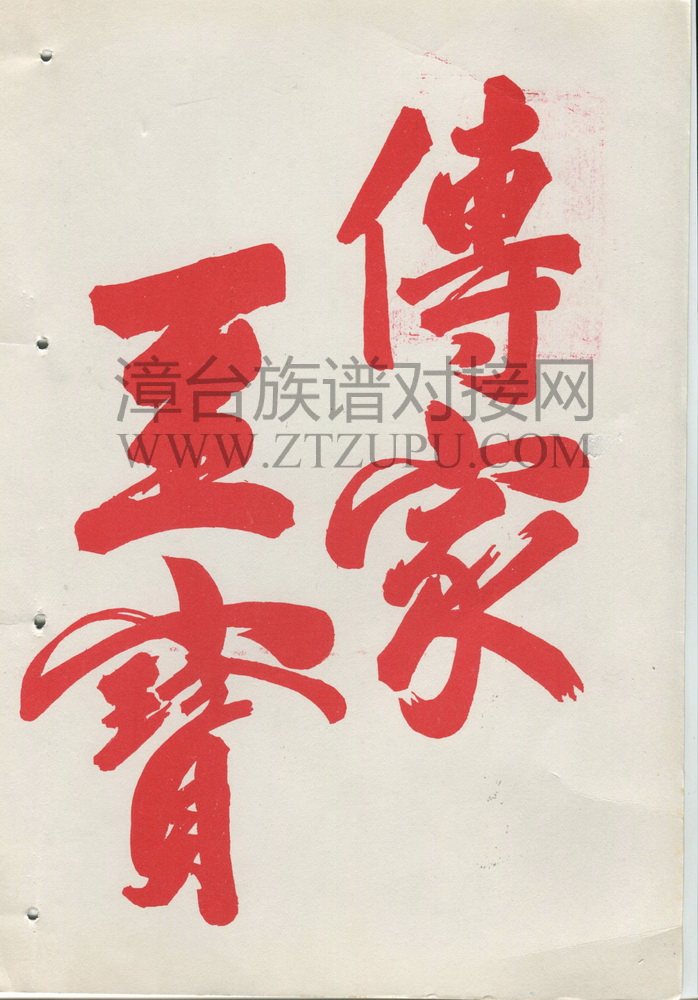 傳家
至寶
漳台族谱对接网
WWW.ZTZUPU.COM